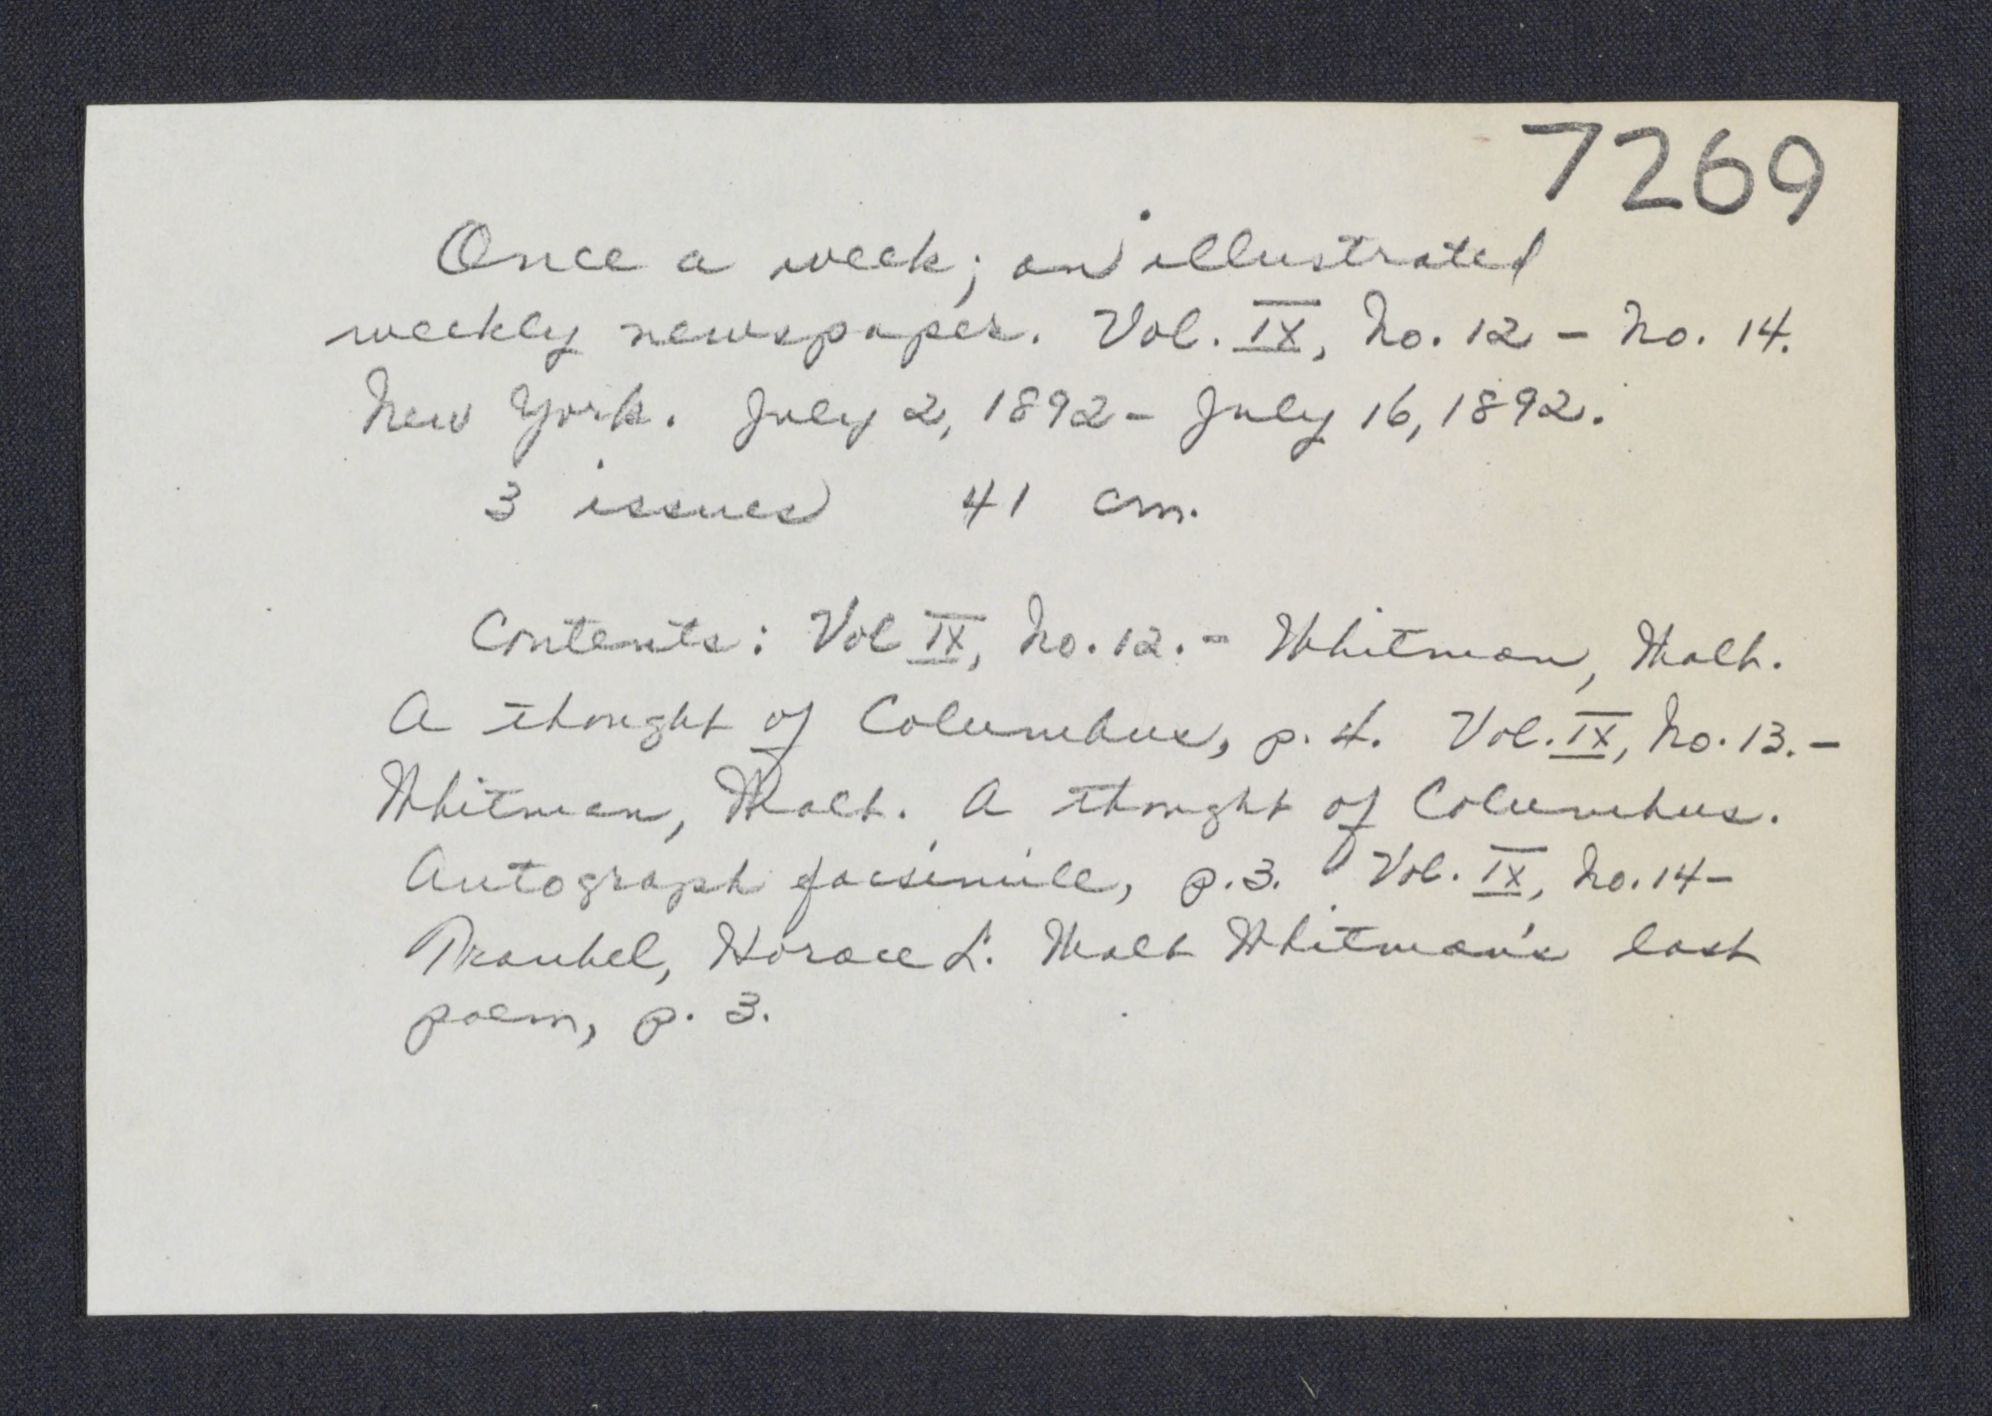 7269
Once a week; an illustrated
weekly newspaper. Vol. IX, No. 12 - No. 14.
New York. July 2, 1892 - July 16, 1892.
3 issues 41 cm.
Contents: Vol IX, No. 12. - Whitman, Walt.
A thought of Columbus, p. 4. Vol. IX, No. 13. -
Whitman, Walt. A thought of Columbus.
Autograph facsimile, p. 3. Vol. IX, No. 14 -
Traubel, Horace L. Walt Whitman's last
poem, p. 3.